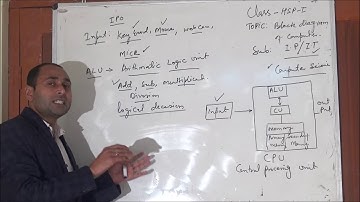 IPO
Input: Key board, Mouse, web cam,
MICR
ALU → Arithmatic Logic unit
Add, Sub, multiplicat.
Division
logical decision
Class - HSP-I
TOPIC: Block diagram
of Computer.
Sub: IP/IT
Computer Science
Input
ALU
CU
Memory
Primary Secondary
out
Put
CPU
Central processing unit